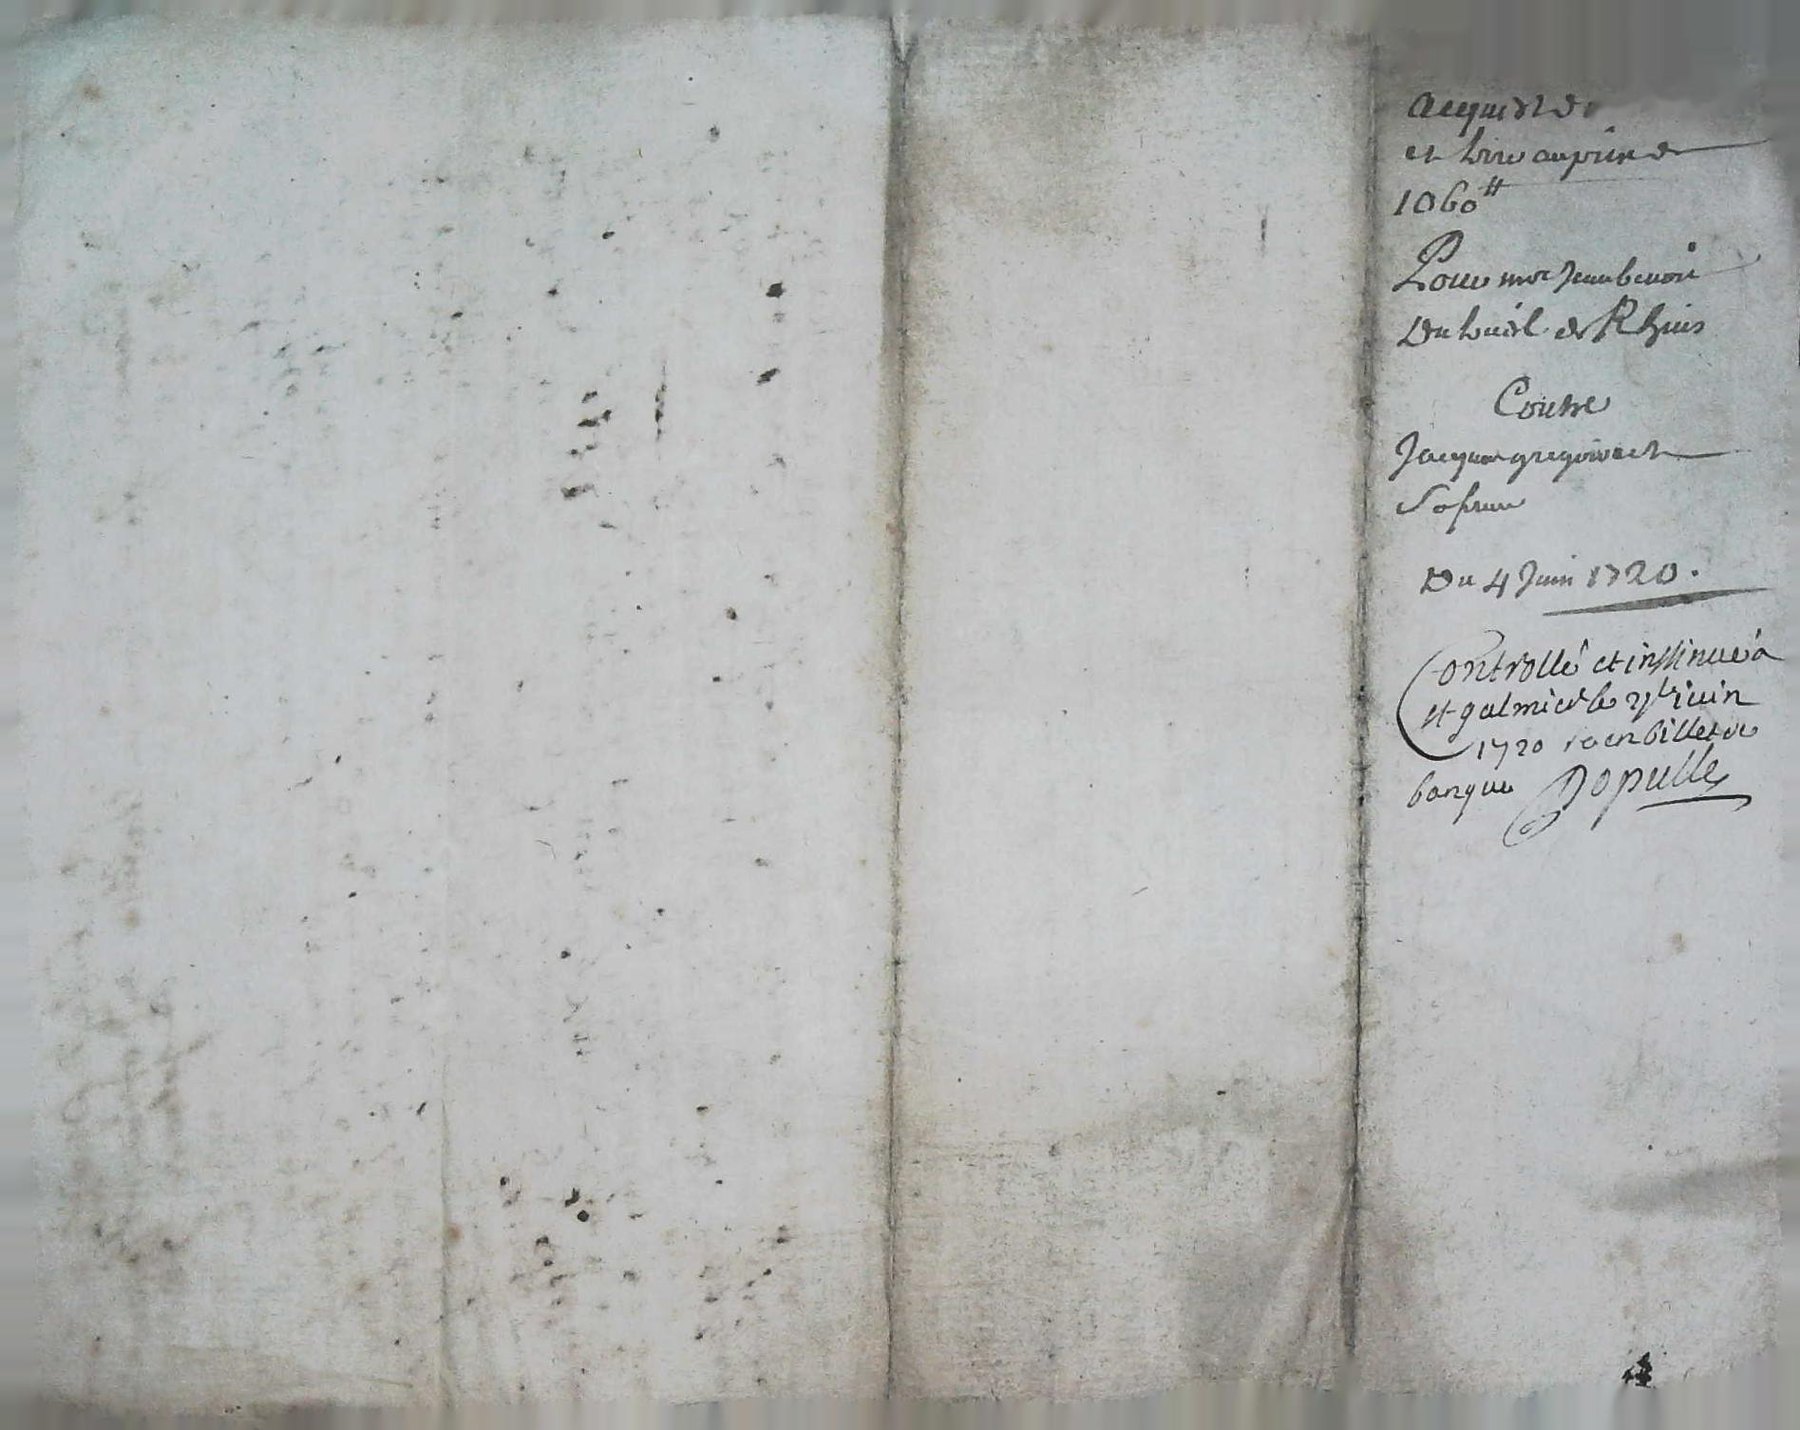 acquist de
et terre au prix de
1060#
Pour mre Jean benoit
Du de Rhins
Contre
Jacques gregoire et
Sa fame
Du 4 Juin 1720.
Controllé et insinué a
st galmier le juin
1720 en billet de
banque